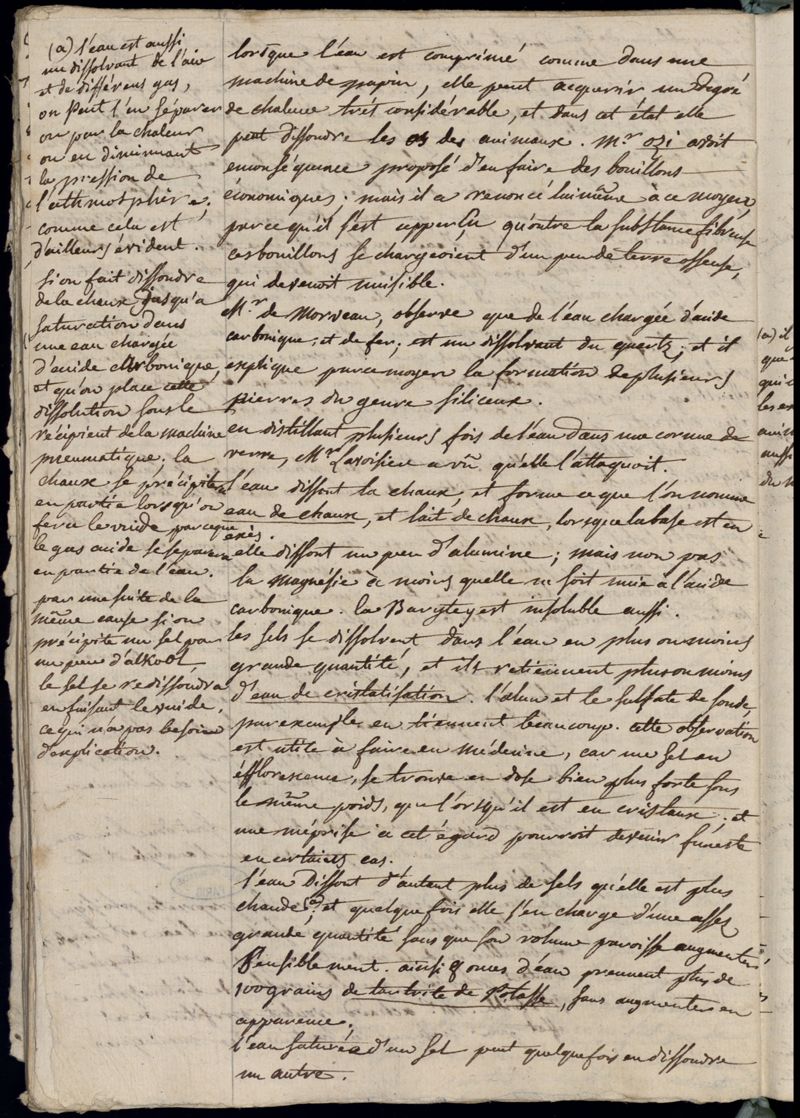 (a) l'eau est aussi
un dissolvant de l'air
et de différens gas,
on Peut l'en séparer
ou par la chaleur
ou en diminuant
la pression de
l'athmosphère,
comme cela est
d'ailleurs évident.
si on fait dissoudre
de la chaux jusqu'a
saturation dans
une eau chargée
d'acide carbonique,
et qu'on place cette
dissolution sous le
récipient de la machine
pneumatique, la
chaux se précipitera
en partie lorsqu'on
fera le vuide parceque
le gas acide se séparera
en partie de l'eau.
par une suite de la
même cause si on
précipite un sel par
un peu d'alkool,
le sel se redissoudra
en faisant le vuide,
ce qui n'a pas besoin
d'explication.
lorsque l'eau est comprimé comme dans une
machine de papin, elle peut acquerir un degré
de chaleur trés considérable, et dans cet état elle
peut dissoudre les os des animaux. Mr ozi avoit
en conséquence proposé d'en faire des bouillons
economiques. mais il a renoncé lui même à ce moyen,
parce qu'il s'est apperçu qu'outre la substance fibreuse
ces bouillons se chargeoient d'un peu de terre osseuse,
qui devenoit nuisible.
Mr. de Morveau, observe que de l'eau chargée d'acide
carbonique, et de fer, est un dissolvant du quartz, et il
explique par ce moyen la formation de plusieurs
pierres du genre siliceux.
en distillant plusieurs fois de l'eau dans une cornue de
verre, Mr Lavoisier a vû qu'elle l'attaquoit.
l'eau dissout la chaux, et forme ce que l'on nomme
eau de chaux, et lait de chaux, lorsque la base est en
exès.
elle dissout un peu d'alumine; mais non pas
la magnésie à moins quelle ne soit unie à l'acide
carbonique. la Baryte y est insoluble aussi.
les sels se dissolvent dans l'eau en plus ou moins
grande quantité, et ils retiennent plus ou moins
d'eau de cristalisation. l'alun et le sulfate de soude,
par exemple, en tiennent beaucoup. cette observation
est utile à faire en médecine, car un sel en
éfflorescence, se trouve en dose bien plus forte sous
le même poids, que l'orsqu'il est en cristaux, et
une méprise à cet égard pourroit devenir funeste
en certains cas.
l'eau Dissout d'autant plus de sels qu'elle est plus
chaude, et quelque fois elle s'en charge d'une assez
grande quantité sans que son volume paroisse augmenter
sensiblement. ainsi 8 onces d'eau prennent plus de
100 grains de tartrite de Potasse, sans augmenter en
apparence.
l'eau saturée d'un sel peut quelquefois en dissoudre
un autre.
(a) il
que
qui
les
aussi
du